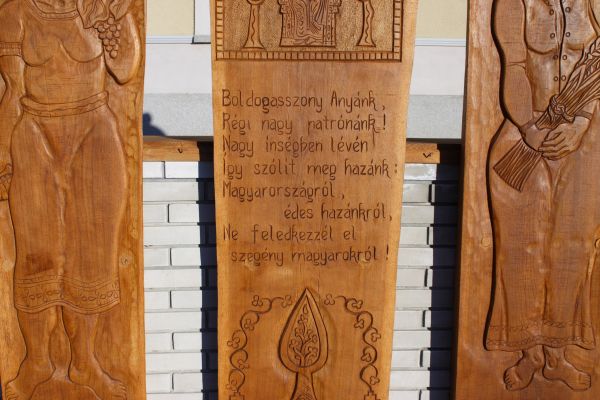 Boldogasszony Anyánk,
Régi nagy patrónánk!
Nagy inségben lévén
Így szólít meg hazánk:
Magyarországról,
édes hazánkról,
Ne feledkezzél el
szegény magyarokról!